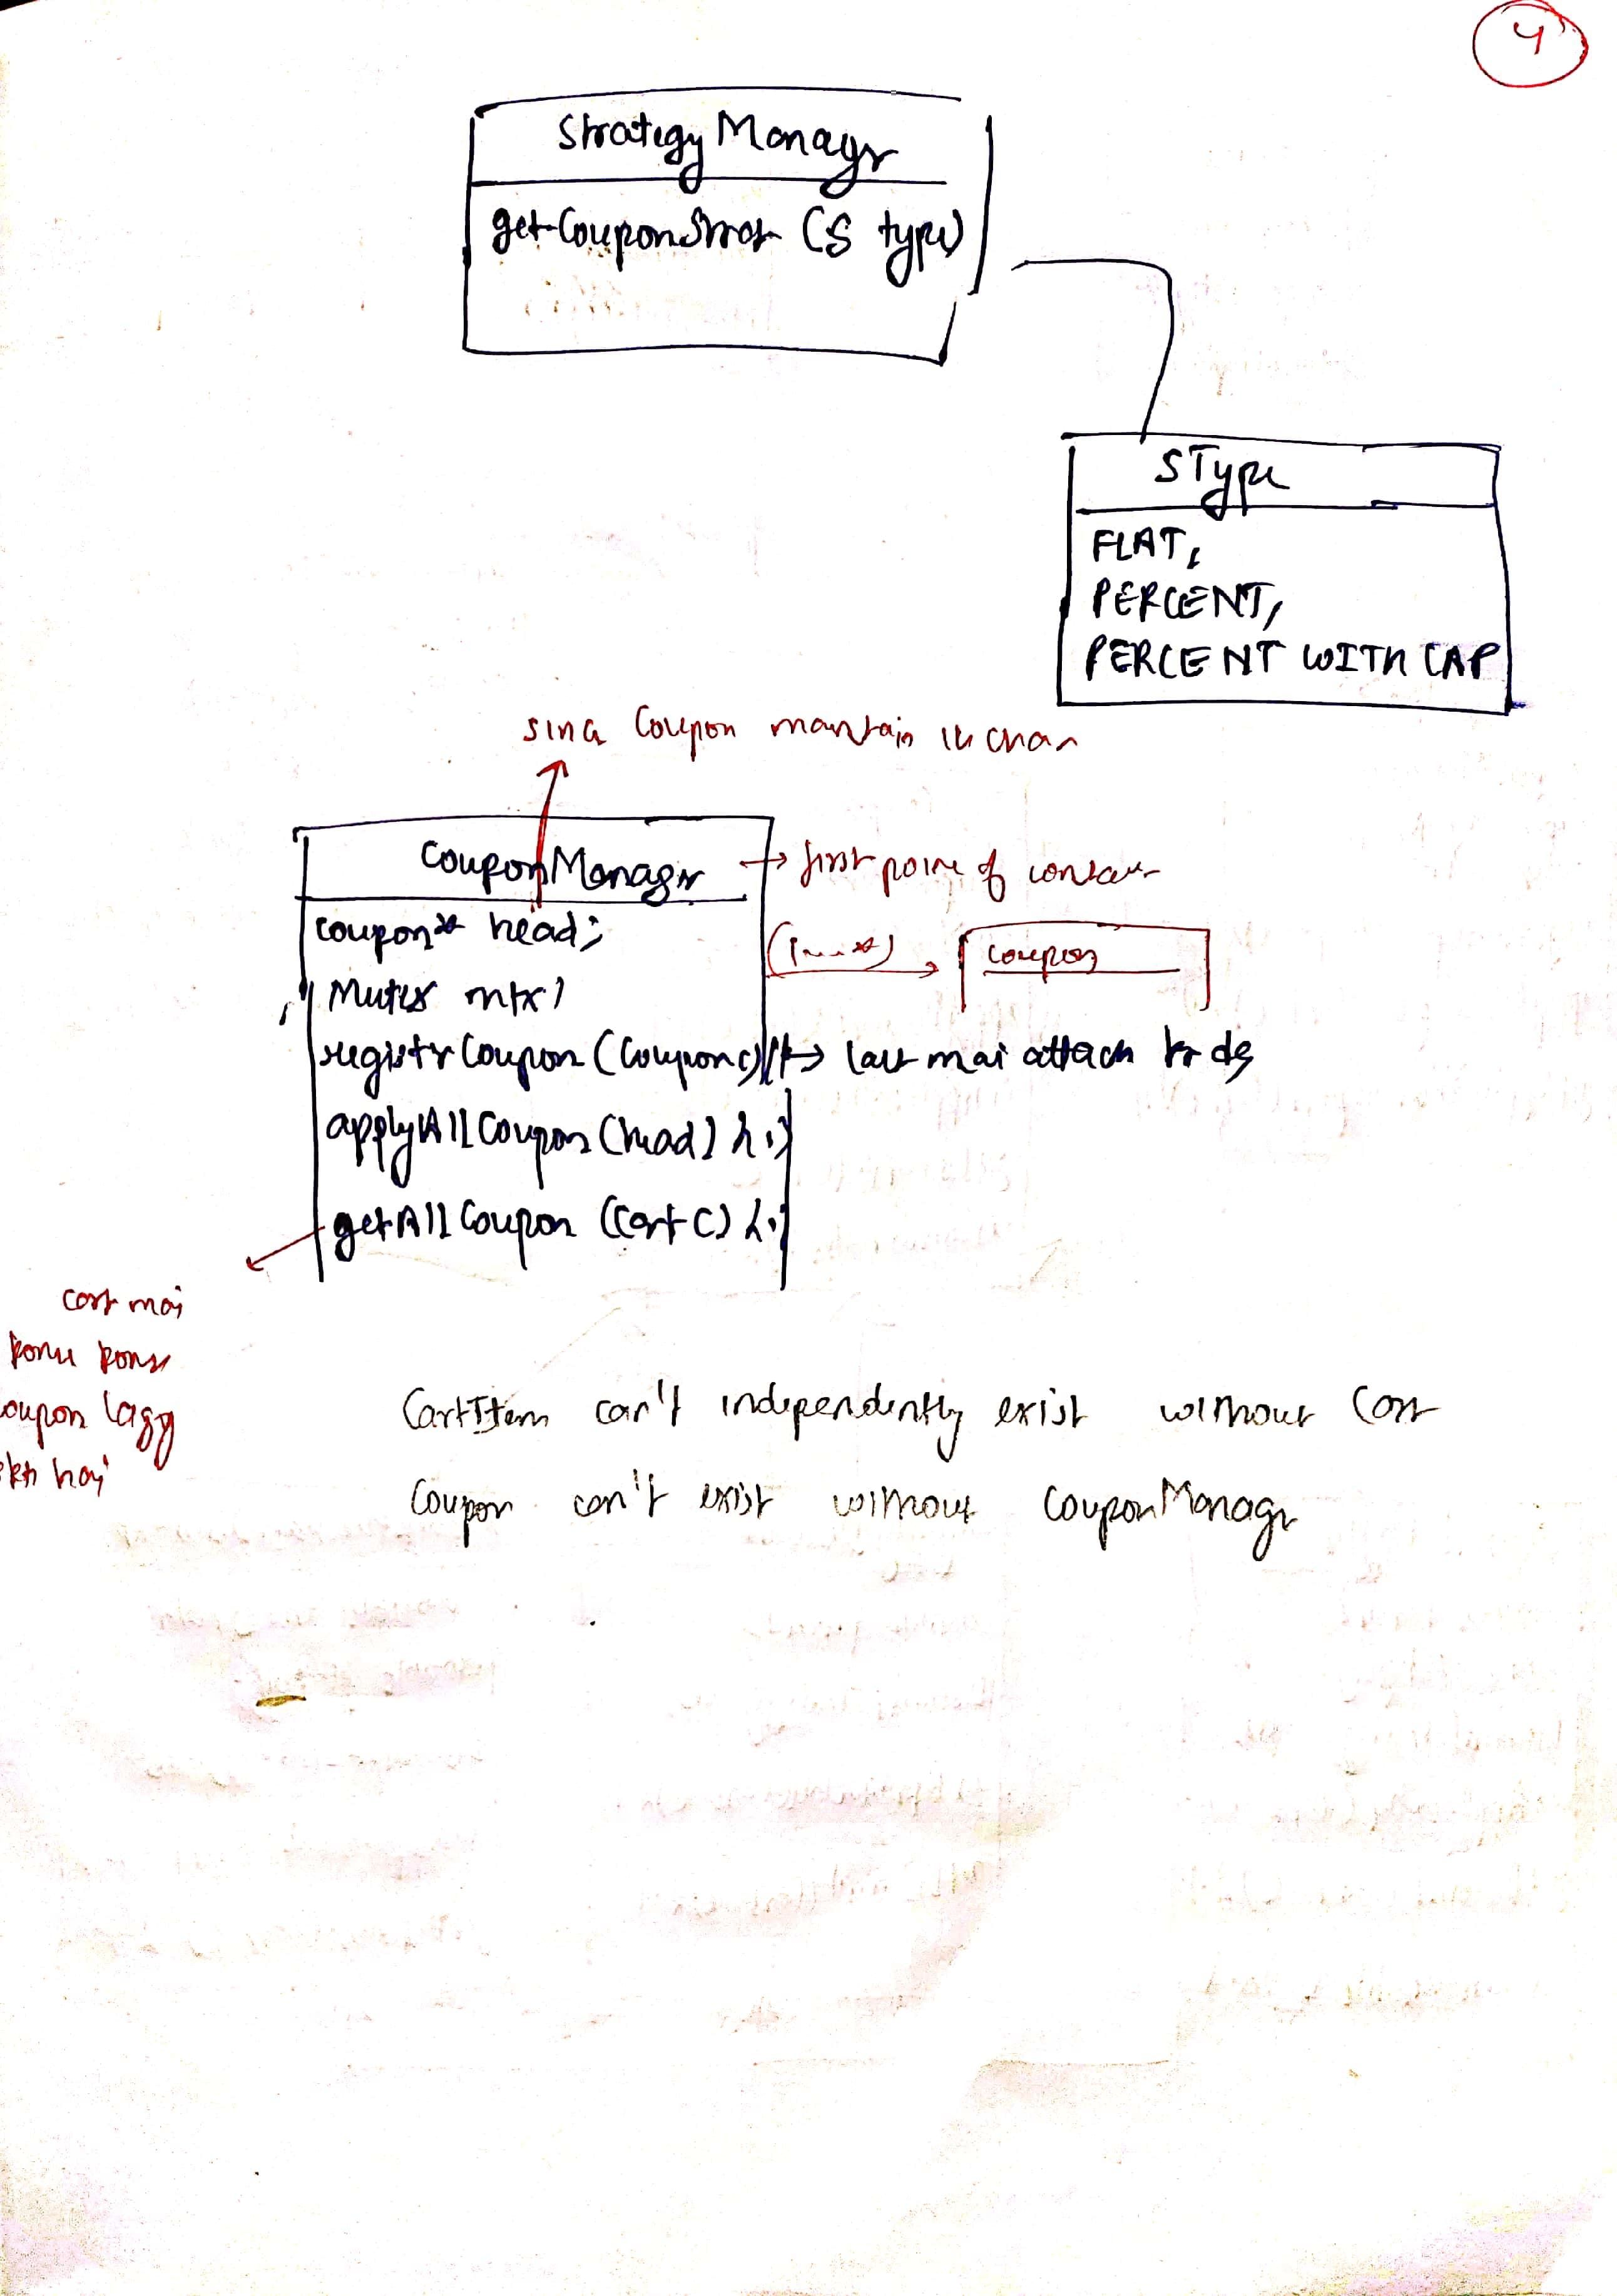 4
Strategy Managr
get Coupon Strat (S type)
SType
FLAT,
PERCENT,
PERCENT WITH CAP
sinc Coupon maintain in chan
Coupon Managr
→ first point of contact
coupon* head;
(1...*)
coupon
Mutex mtx;
registr Coupon (Coupon c) → last mai attach kr de
applyAll Coupon (head) { }
getAll Coupon (Cart C) { }
cart mai
konse konse
oupon lagg
skte hai
CartItem can't independently exist without Cart
Coupon can't exist without CouponManagr